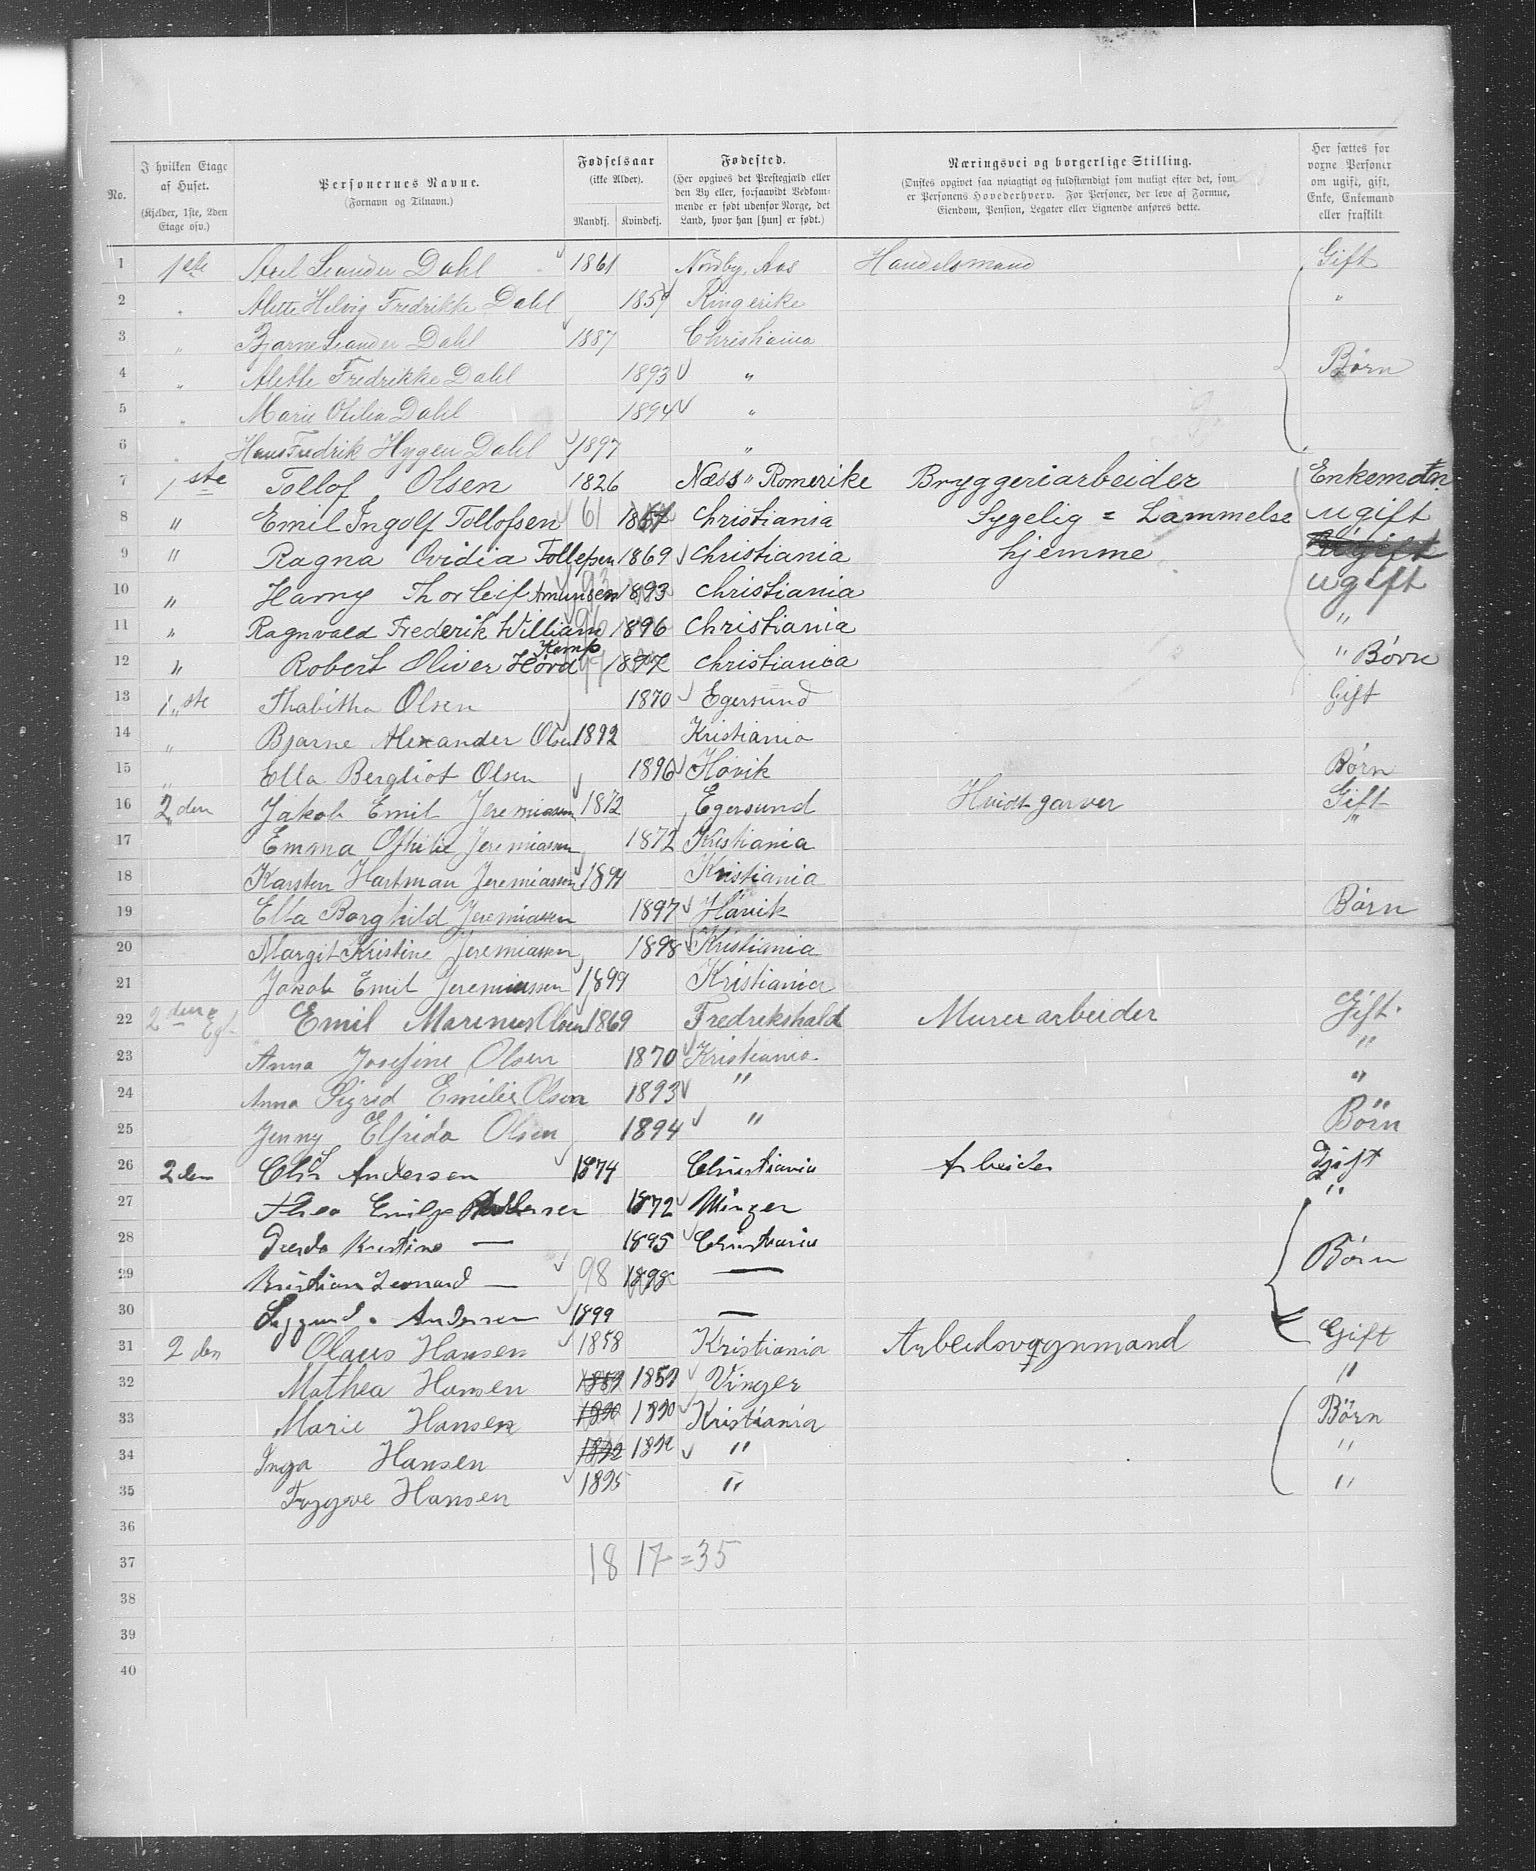 No. | I hvilken Etage af Huset. (Kjelder, 1ste, 2den Etage osv.) | Personernes Navne. (Fornavn og Tilnavn.) | Fødselsaar (ikke Alder). Mandkj. Kvindekj. | Fødested. (Her opgives det Prestegjæld eller den By eller, forsaavidt Vedkommende er født udenfor Norge, det Land, hvor han [hun] er født.) | Næringsvei og borgerlige Stilling. (Ønskes opgivet saa nøiagtigt og fuldstændigt som muligt efter det, som er Personens Hovederhverv. For Personer, der leve af Formue, Eiendom, Pension, Legater eller Lignende anføres dette. | Her sættes for voxne Personer om ugift, gift, Enke, Enkemand eller fraskilt
1 1ste Axel Leander Dahl 1861 Nordby, Aas Handelsmand Gift
2 " Alette Helvig Fredrikke Dahl 1857 Ringerike "
3 " Bjarne Leander Dahl 1887 Christiania
4 " Alette Fredrikke Dahl 1893 " Børn
5 " Marie Otilia Dahl 1894 "
6 " Hans Fredrik Hygen Dahl 1897 "
7 1ste Tollof Olsen 1826 Næss " Romerike Bryggeriarbeider Enkemand
8 " Emil Ingolf Tollofsen 61 Christiania Sygelig = Lammelse ugift
9 " Ragna Ovidia Tollefsen 1869 Christiania hjemme
10 " Harry Thorleif Amundsen 93 1893 Christiania ugift
11 " Ragnvald Frederik William 96 1896 Christiania "
12 " Robert Oliver Hørd Kamp 97 1897 Christiania " Børn
13 1ste Thabitha Olsen 1870 Egersund Gift
14 " Bjarne Alexander Olsen 1892 Kristiania
15 " Ella Bergliot Olsen 1896 Høvik Børn
16 2den Jakob Emil Jeremiassen 1872 Egersund Hvidtgarver Gift
17 Emma Othilie Jeremiassen 1872 Kristiania "
18 Karsten Hartman Jeremiassen 1894 Kristiania
19 Ella Borghild Jeremiassen 1897 Høvik Børn
20 Margit Kristine Jeremiassen 1898 Kristiania
21 Jakob Emil Jeremiassen 1899 Kristiania
22 2den Etg. Emil Marinus Olsen 1869 Fredrikshald Murerarbeider Gift.
23 Anna Josefine Olsen 1870 Kristiania "
24 Anna Sigrid Emilie Olsen 1893 " "
25 Jenny Elfrida Olsen 1894 " " Børn
26 2den Andersen 1874 Christiania Arbeider Gift
27 Thea Emilie 1872 Vinger "
28 Gerda Kristine — 1895 Christiania
29 Kristian Leonard — 98 1898 — Børn
30 Sigurd Andersen 1899 —
31 2den Olaus Hansen 1858 Kristiania Arbeidsvognmand Gift
32 Mathea Hansen 1859 1859 Vinger "
33 Marie Hansen 1890 1890 Kristiania Børn
34 Inga Hansen 1892 1892 " "
35 Trygve Hansen 1895 " "
36
37 18 17 = 35
38
39
40